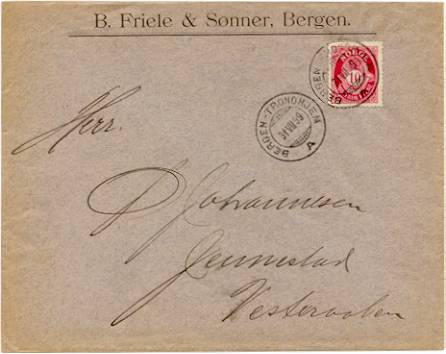 B. Friele & Sønner, Bergen.
NORGE
10
BERGEN
BERGEN-TRONDHJEM
31 VII 99
A
Herr.
P Johannesen
Jennestad
Vesteraalen